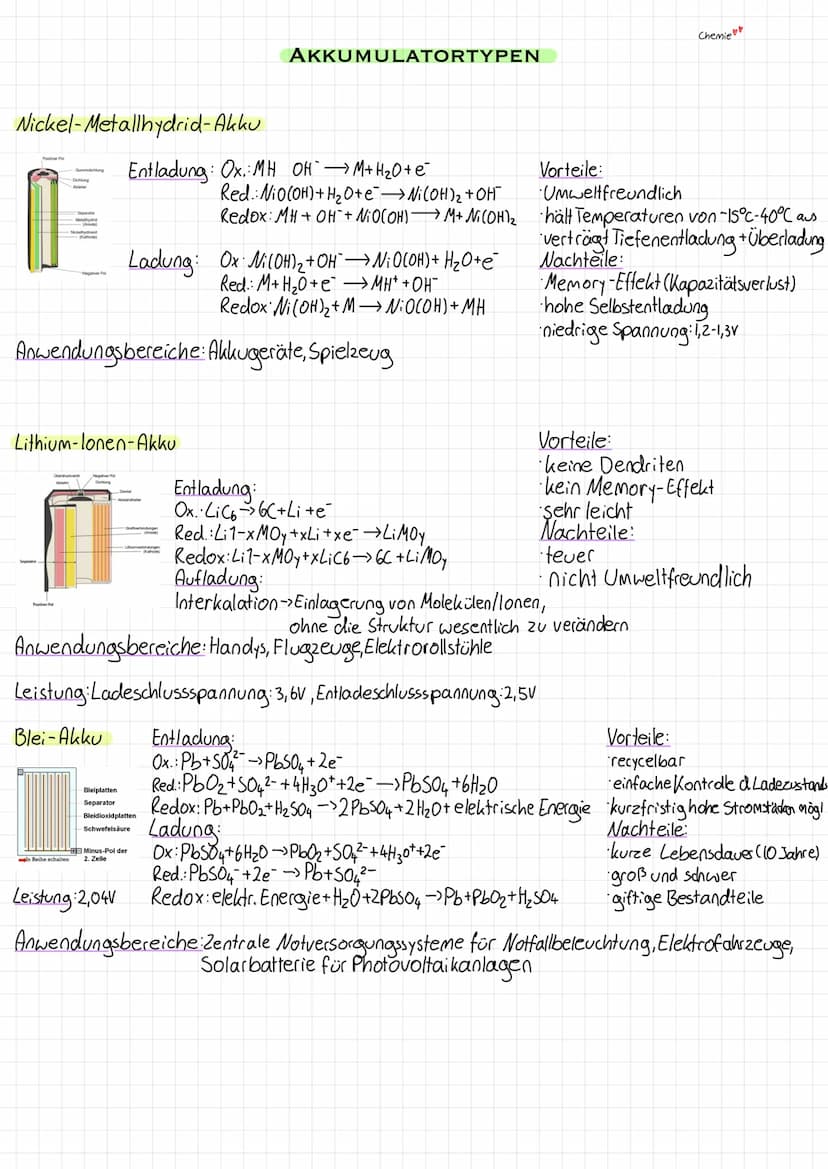 Chemie
AKKUMULATORTYPEN
Nickel-Metallhydrid-Akku
Positiver Pol
Gummidichtung
Dichtung
Ableiter
Separator
Metallhydrid
(Anode)
Nickelhydroxid
(Kathode)
Negativer Pol
Entladung: Ox.: MH OH⁻ → M+H₂O+e⁻
Red.: NiO(OH)+H₂O+e⁻ → Ni(OH)₂+OH⁻
Redox: MH+OH⁻+NiO(OH) → M+Ni(OH)₂
Ladung: Ox· Ni(OH)₂+OH⁻ → NiO(OH)+H₂O+e⁻
Red.: M+H₂O+e⁻ → MH⁺+OH⁻
Redox· Ni(OH)₂+M → NiO(OH)+MH
Vorteile:
·Umweltfreundlich
·hält Temperaturen von -15°C-40°C aus
·verträgt Tiefenentladung+Überladung
Nachteile:
·Memory-Effekt (Kapazitätsverlust)
·hohe Selbstentladung
·niedrige Spannung: 1,2-1,3V
Anwendungsbereiche: Akkugeräte, Spielzeug
Lithium-Ionen-Akku
Negativer Pol
Ableiter
Dichtung
Deckel
Separator
Positiver Pol
Entladung:
Ox.: LiC₆ → 6C+Li+e⁻
Red.: Li1-xMOy+xLi+xe⁻ → LiMOy
Redox: Li1-xMOy+xLiC6 → 6C+LiMOy
Aufladung:
Interkalation → Einlagerung von Molekülen/Ionen,
ohne die Struktur wesentlich zu verändern
Vorteile:
·keine Dendriten
·kein Memory-Effekt
·sehr leicht
Nachteile:
·teuer
·nicht Umweltfreundlich
Anwendungsbereiche: Handys, Flugzeuge, Elektrorollstühle
Leistung: Ladeschlussspannung: 3,6V, Entladeschlussspannung: 2,5V
Blei-Akku
Bleiplatten
Separator
Bleidioxidplatten
Schwefelsäure
Minus-Pol der
2. Zelle
In Reihe schalten
Leistung: 2,04V
Entladung:
Ox.: Pb+SO₄²⁻ → PbSO₄+2e⁻
Red.: PbO₂+SO₄²⁻+4H₃O⁺+2e⁻ → PbSO₄+6H₂O
Redox: Pb+PbO₂+H₂SO₄ → 2PbSO₄+2H₂O+elektrische Energie
Ladung:
Ox: PbSO₄+6H₂O → PbO₂+SO₄²⁻+4H₃O⁺+2e⁻
Red.: PbSO₄⁻+2e⁻ → Pb+SO₄²⁻
Redox: elektr. Energie+H₂O+2PbSO₄ → Pb+PbO₂+H₂SO₄
Vorteile:
·recycelbar
·einfache Kontrolle d. Ladezustand
·kurzfristig hohe Stromstärken mögl
Nachteile:
·kurze Lebensdauer (10 Jahre)
·groß und schwer
·giftige Bestandteile
Anwendungsbereiche: Zentrale Notversorgungssysteme für Notfallbeleuchtung, Elektrofahrzeuge,
Solarbatterie für Photovoltaikanlagen